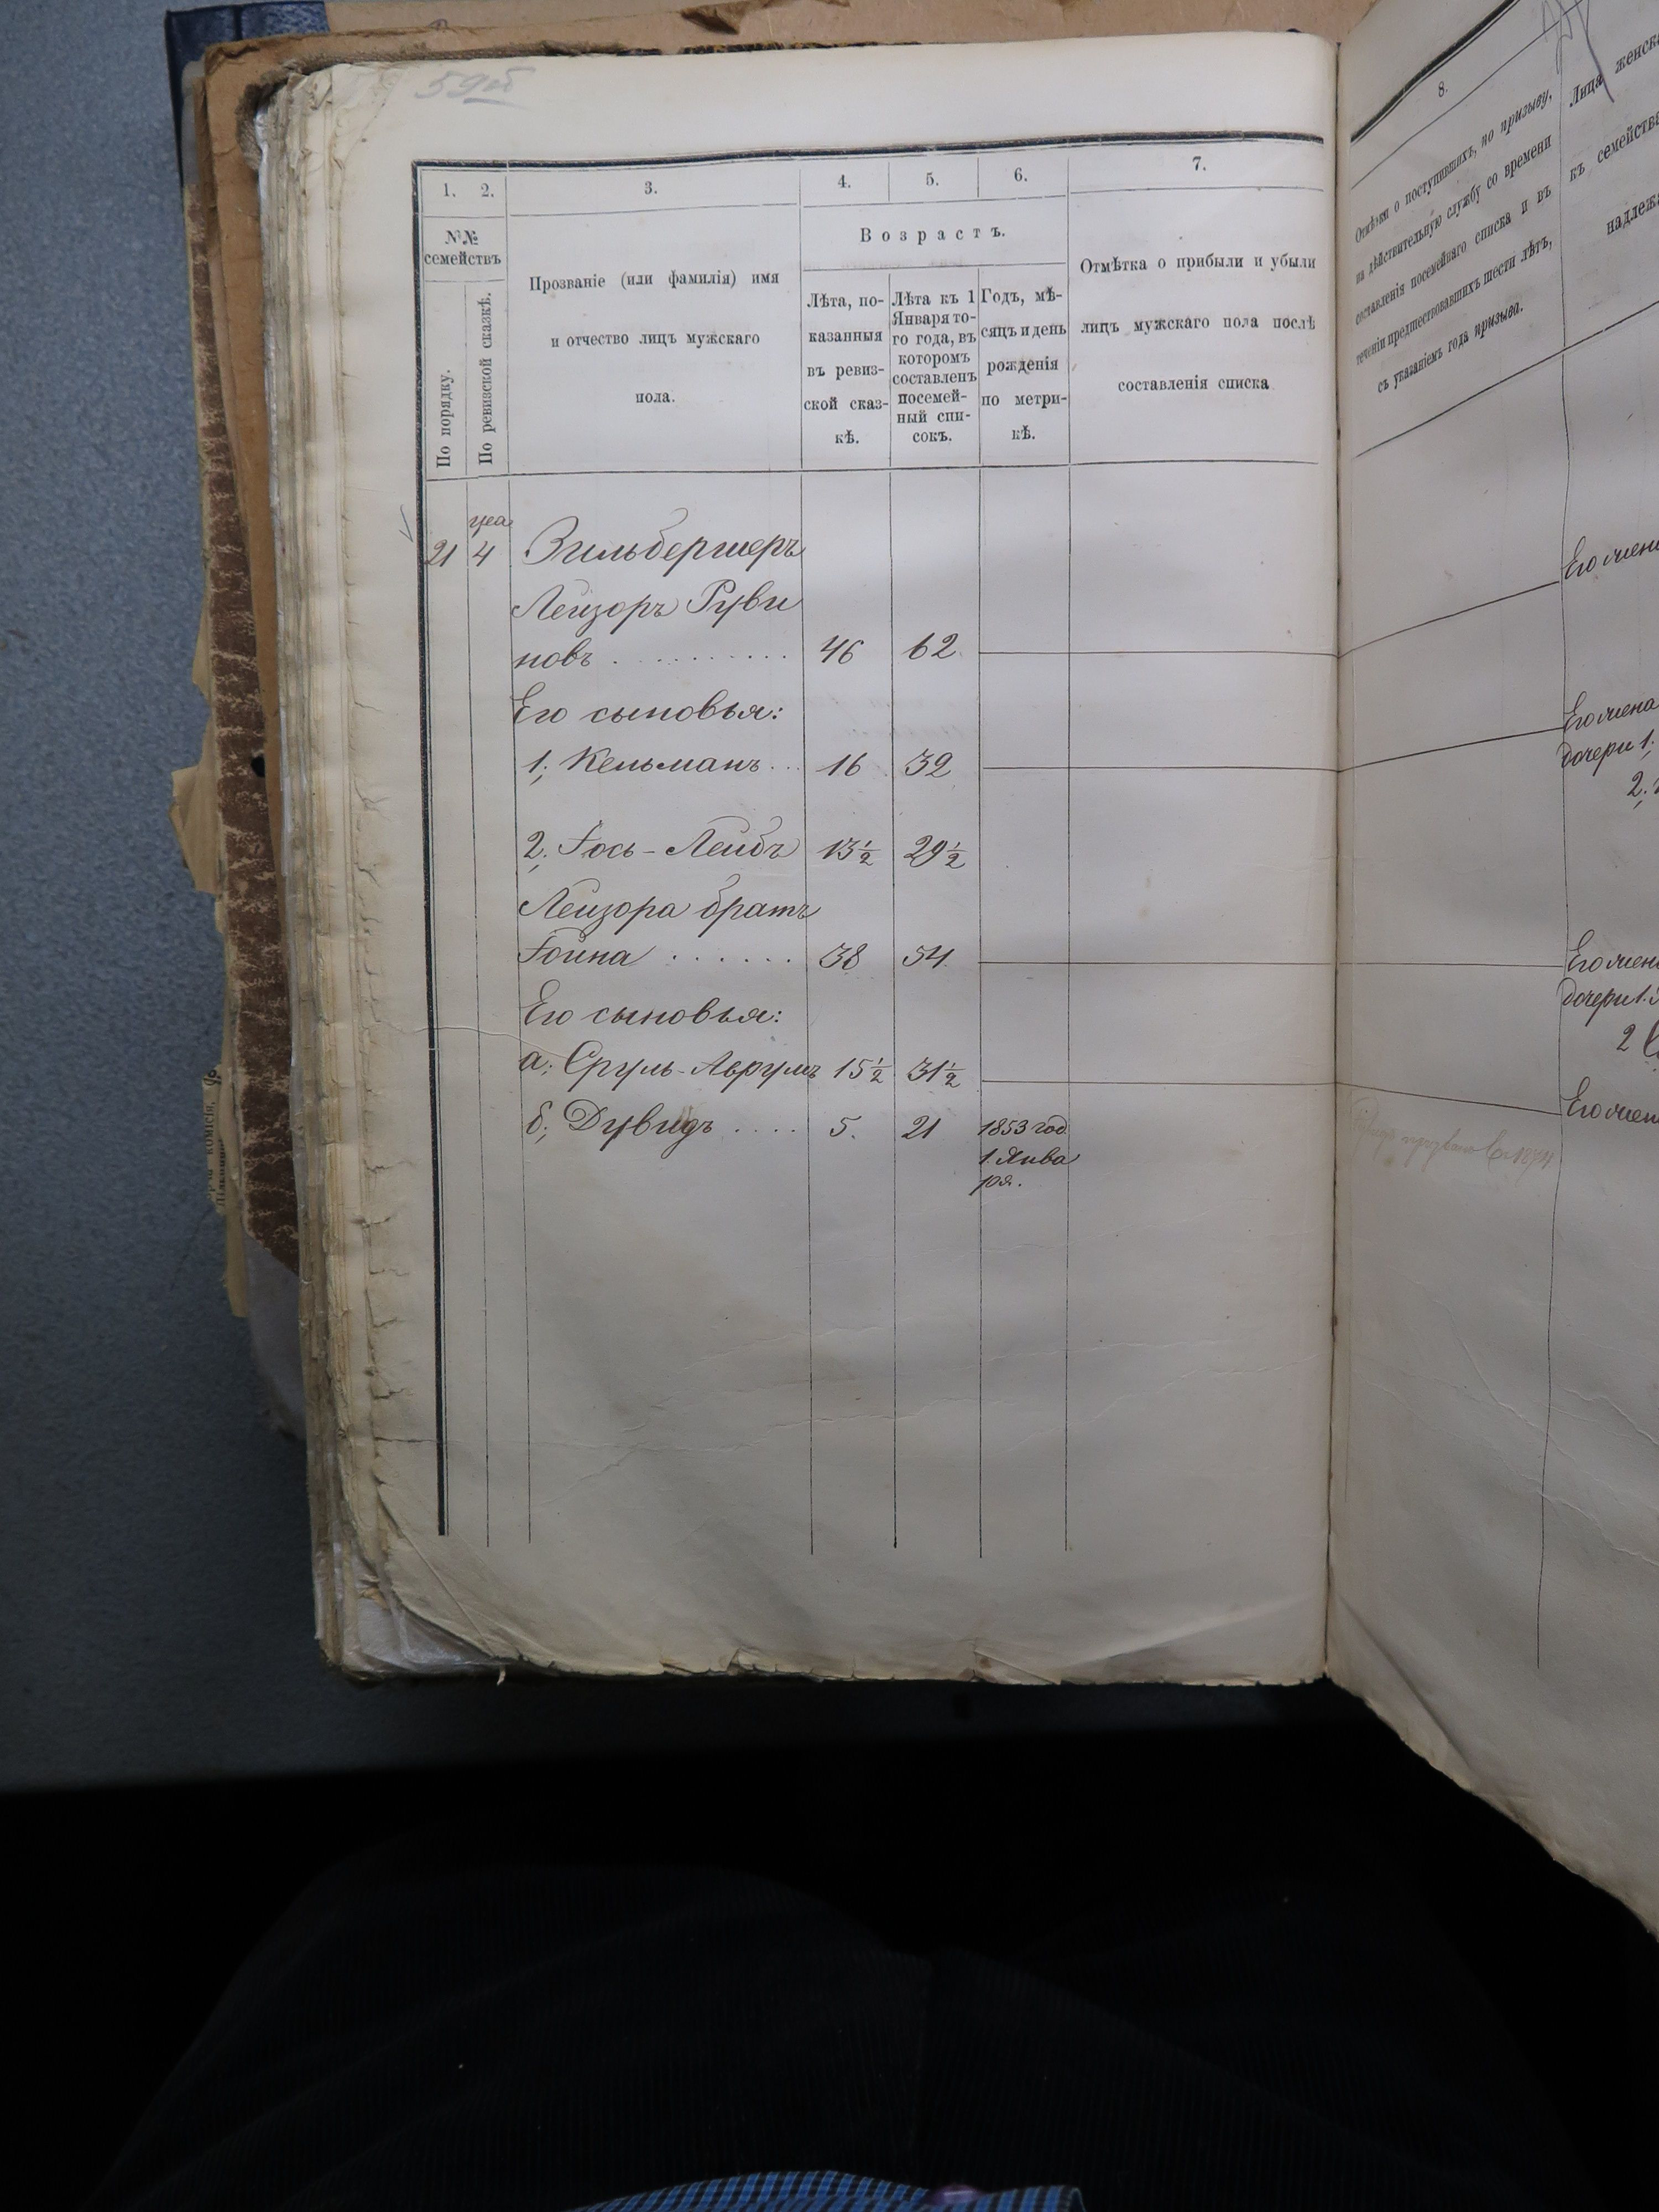 59об
1. 2. 3. 4. 5. 6. 7.
№№ семействъ
По порядку.
По ревизской сказкѣ.
Прозваніе (или фамилія) имя
и отчество лицъ мужскаго
пола.
Возрастъ.
Лѣта, по-
казанныя
въ ревиз-
ской сказ-
кѣ.
Лѣта къ 1
Января то-
го года, въ
которомъ
составленъ
посемей-
ный спи-
сокъ.
Годъ, мѣ-
сяцъ и день
рожденія
по метри-
кѣ.
Отмѣтка о прибыли и убыли
лицъ мужскаго пола послѣ
составленія списка
21 4 Зильбершеръ
Лейзоръ Руви
новъ . . . . . . . . . . 46 62
Его сыновья:
1; Кельманъ . . . 16 32
2; Іось-Лейбъ 13½ 29½
Лейзора братъ
Іойна . . . . . . 38 54.
Его сыновья:
а; Сруль-Аврумъ 15½ 31½
б; Дувидъ . . . . 5. 21 1853 год.
1. Янва
ря.
8.
Отмѣтки о поступившихъ, по призыву,
на дѣйствительную службу со времени
составленія посемейнаго списка и въ
теченіи предшествовавшихъ шести лѣтъ,
съ указаніемъ года призыва.
Лица женск
къ семейств
надлеж
Его жен
Его жена
дочери 1;
2;
Его жен
дочери 1.
2
Его жен